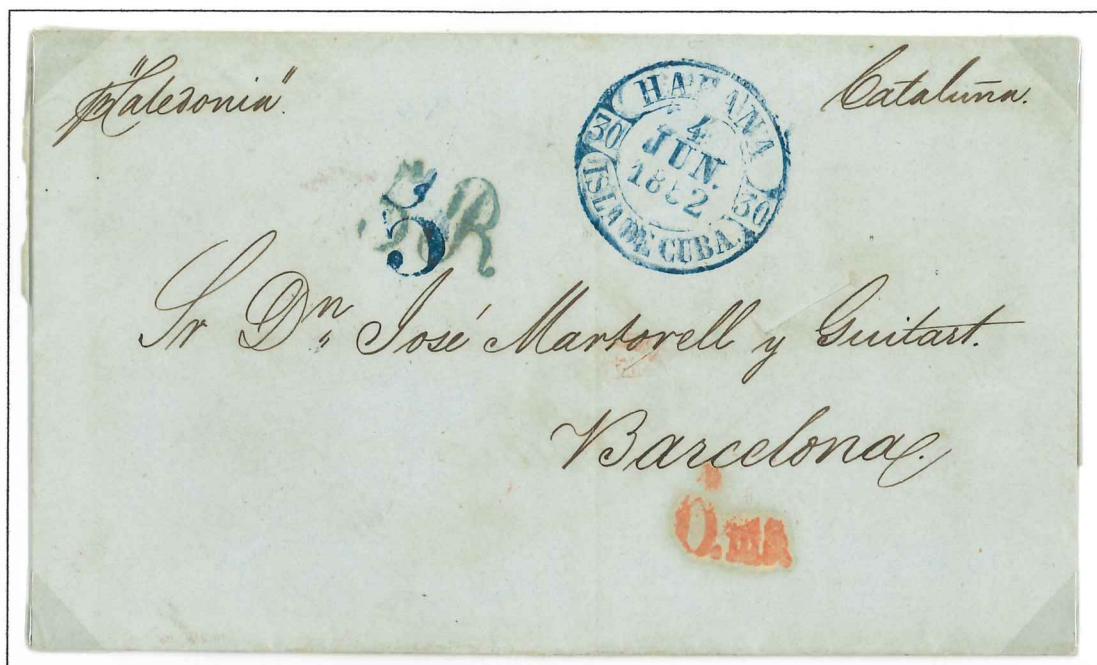 p "Caledonia".
Cataluña.
HABANA
4
JUN.
1852
30
30
ISLA DE CUBA.
5R
5
Sr Dn José Martorell y Guitart.
Barcelona.